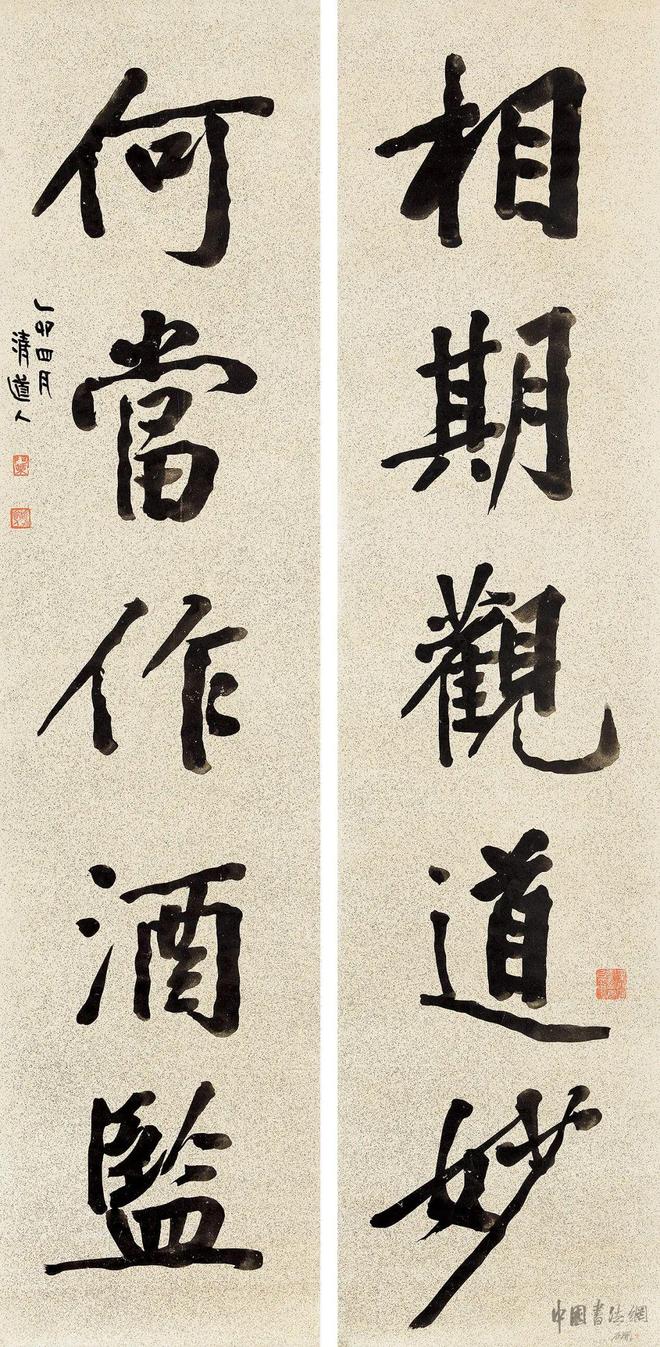 相期觀道妙
何當作酒監
乙卯四月
清道人
中國書法網